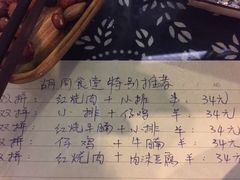 胡同食堂特别推荐:
双拼: 红烧肉 + 小排 羊: 34元
双拼: 小排 + 仔鸡 羊: 34元
双拼: 红烧牛腩 + 小排 羊: 34元
双拼: 仔鸡 + 牛腩 羊: 34元
双拼: 红烧肉 + 肉沫豆腐 羊: 34元